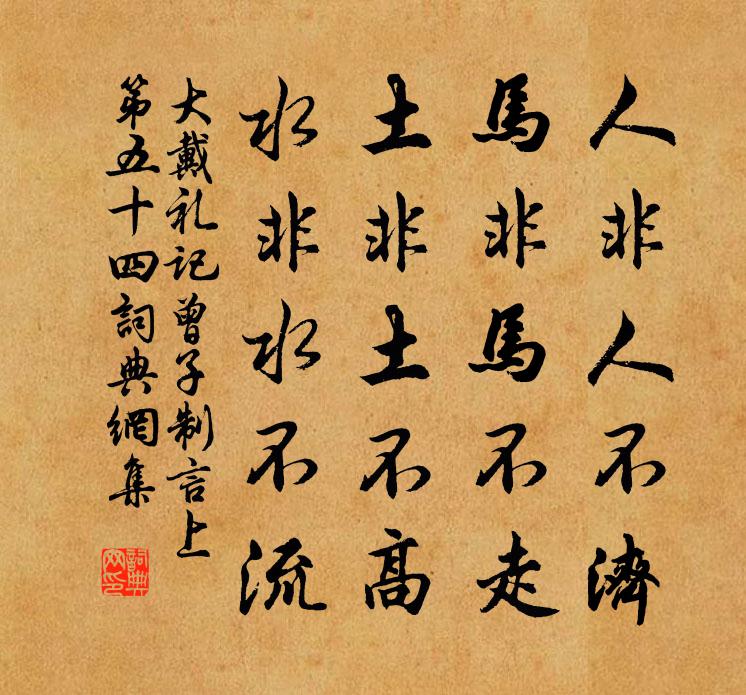 人非人不濟
馬非馬不走
土非土不高
水非水不流
大戴礼记曾子制言上
第五十四詞典網集
詞典網印